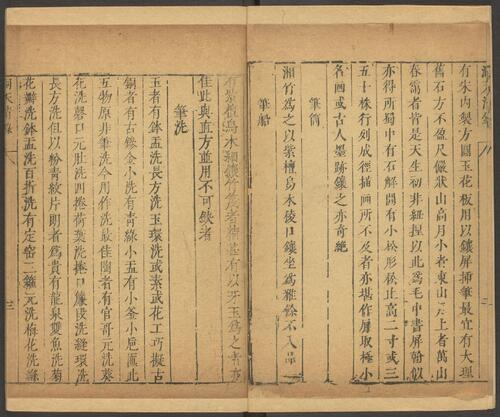 有朱內製方圓玉花板用以鑲屏插筆最宜有大理
舊石方不盈尺儼狀山高月小者東山月上者萬山
春靄者皆是天生初非紐捏以此爲毛中書屏翰似
亦得所蜀中有石解開有小松形松止高二寸或三
五十株行列成徑描画所不及者亦堪作屏取極小
名画或古人墨跡鑲之亦奇絶
筆筒
湘竹爲之以紫檀烏木稜口鑲坐爲雅餘不入品
筆船
有紫檀烏木細鑲竹篾者精甚有以牙玉爲之者亦
佳此與直方並用不可缺者
筆洗
玉者有鉢盂洗長方洗玉環洗或素或花工巧擬古
銅者有古鏒金小洗有青綠小盂有小釜小卮匜此
五物原非筆洗今用作洗最佳陶者有官哥元洗葵
花洗磬口元肚洗四捲荷葉洗捲口簾段洗縫環洗
長方洗但以粉青紋片朗者爲貴有龍泉雙魚洗菊
花瓣洗鉢盂洗百折洗有定窑三箍元洗梅花洗絛
洞天清錄
三